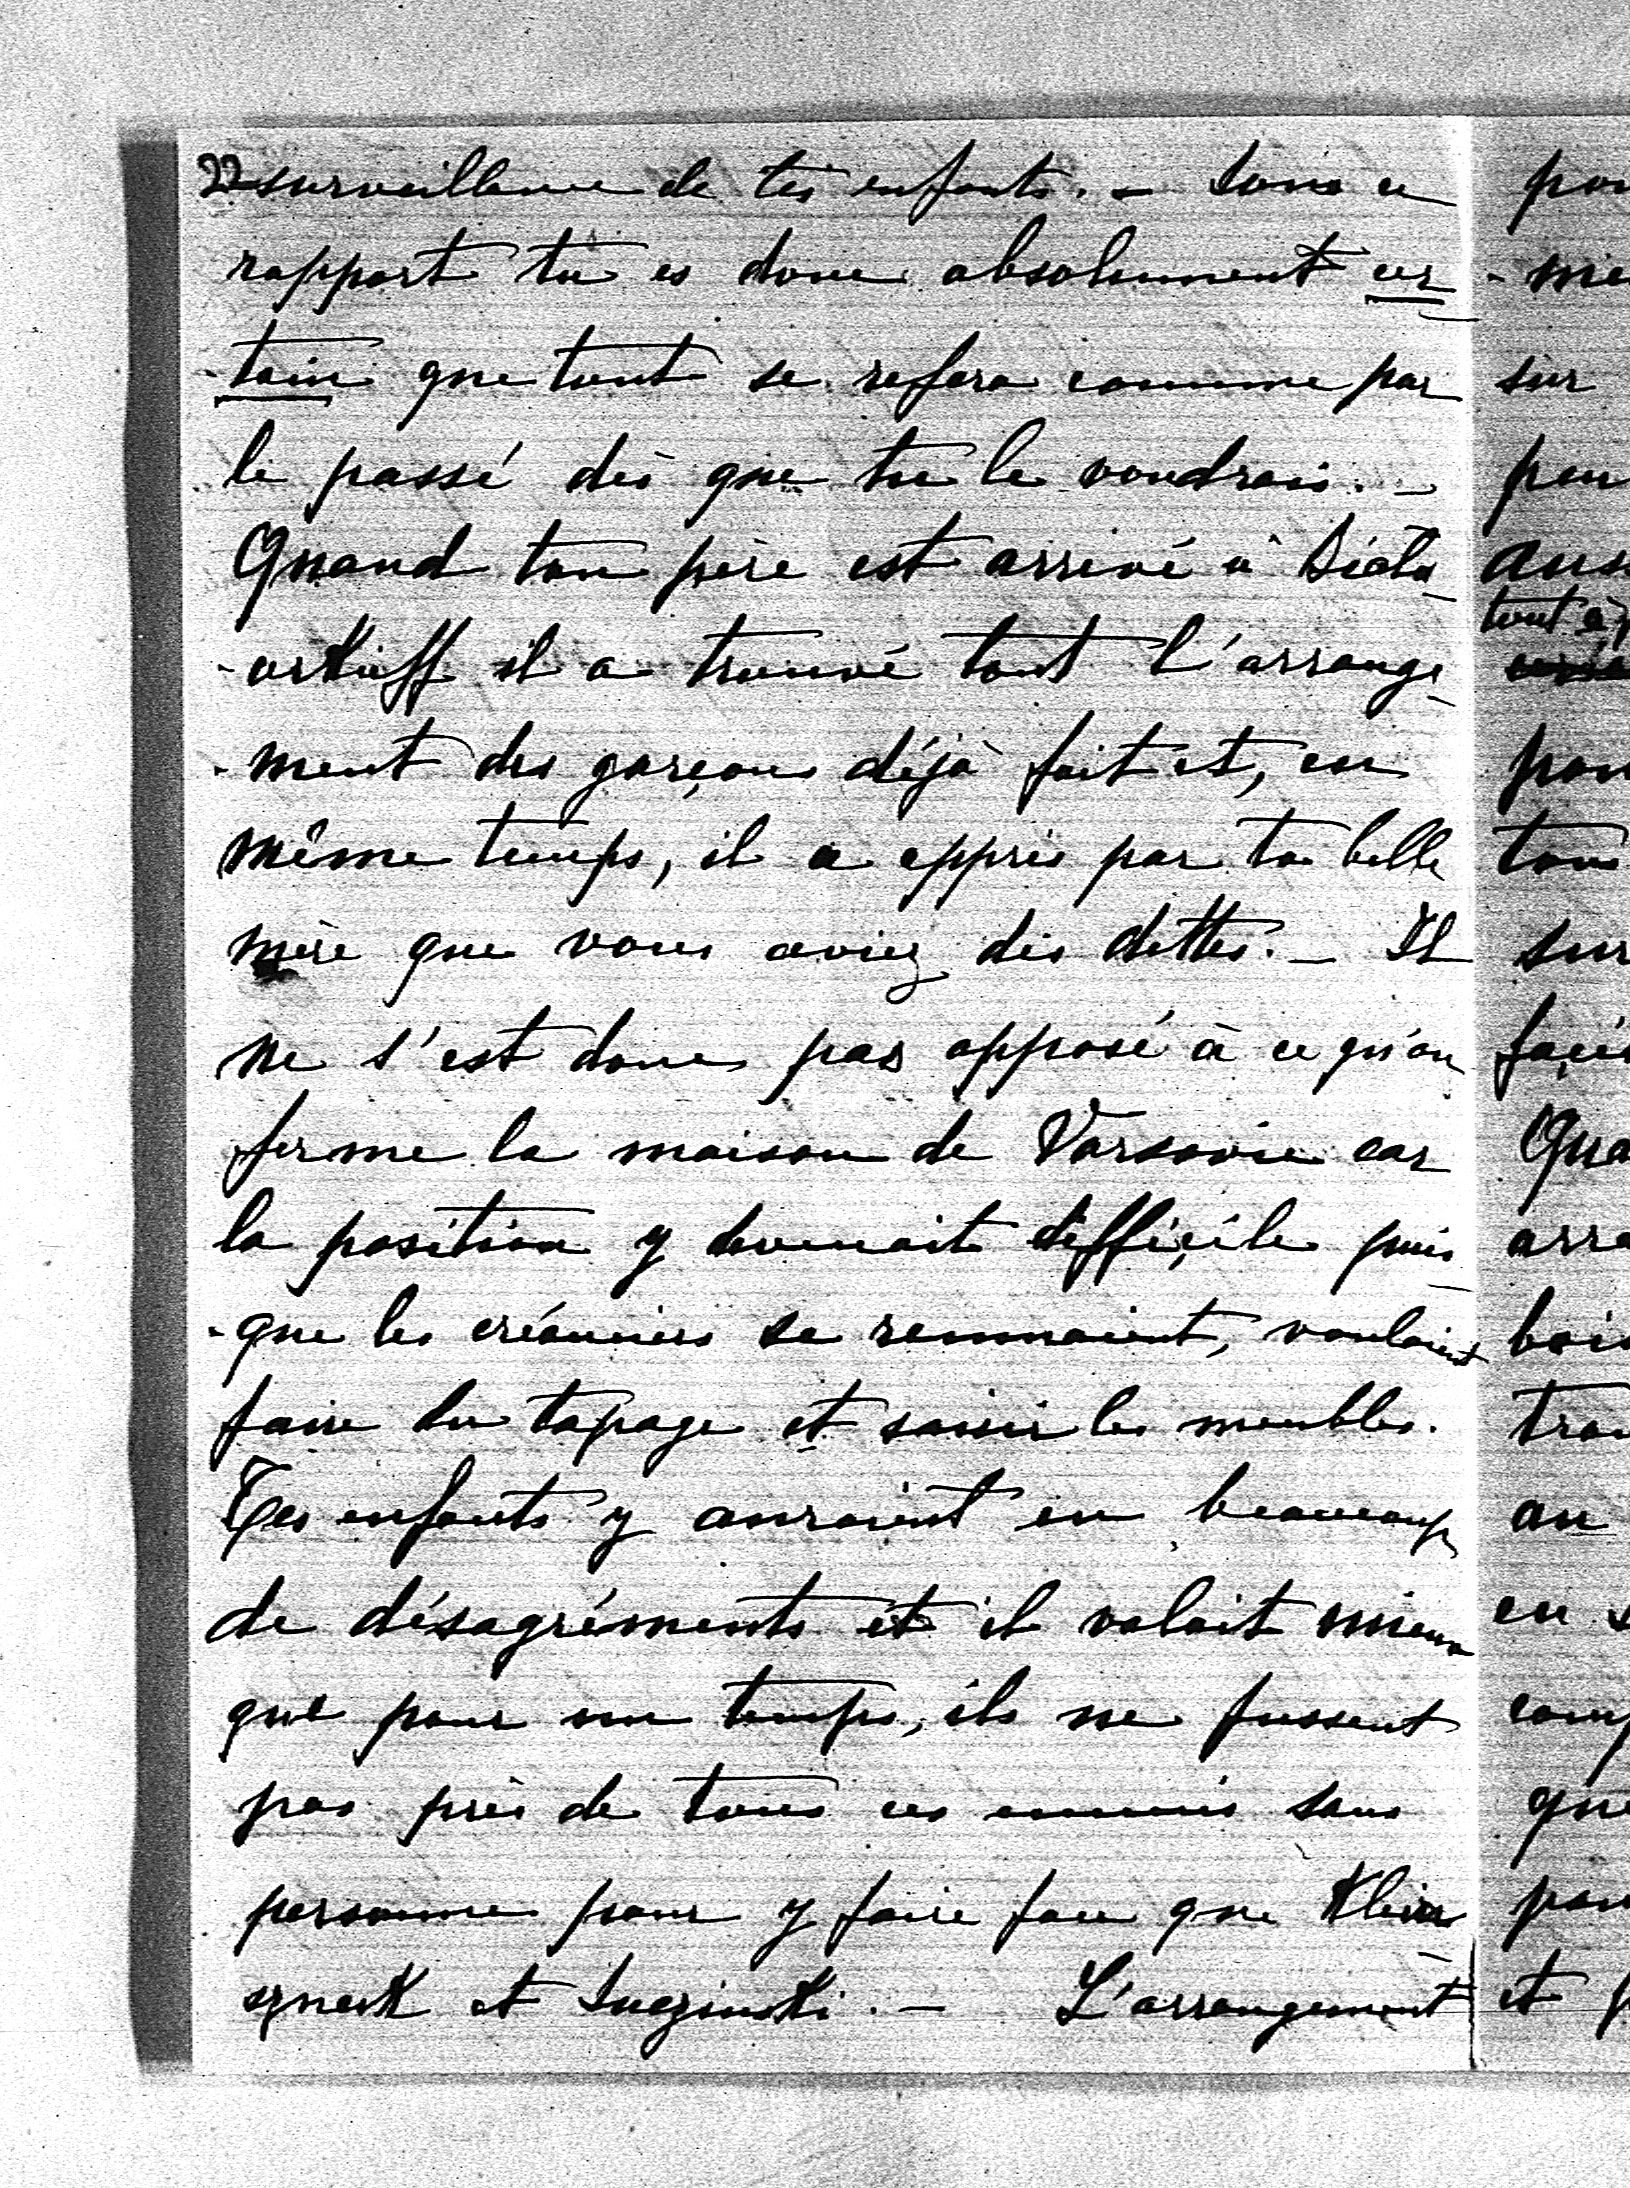 22 surveillance de tes enfants. – Sous ce
rapport tu es donc absolument cer
-tain que tout se refera comme par
le passé dès que tu le voudrais. –
Quand ton père est arrivé à
il a trouvé tout l'arrange
-ment des garçons déjà fait et, en
même temps, il a appris par ta belle
mère que vous aviez des dettes. – Il
ne s'est donc pas opposé à ce qu'on
ferme la maison de Varsovie car
la position y devenait difficile puis
-que les créanciers se remuaient, voulaient
faire du tapage et saisir les meubles.
Tes enfants y auraient eu beaucoup
de désagréments et il valait mieux
que pour un temps, ils ne fussent
pas près de tous ces ennuis sans
personne pour y faire face que
et – L'arrangement